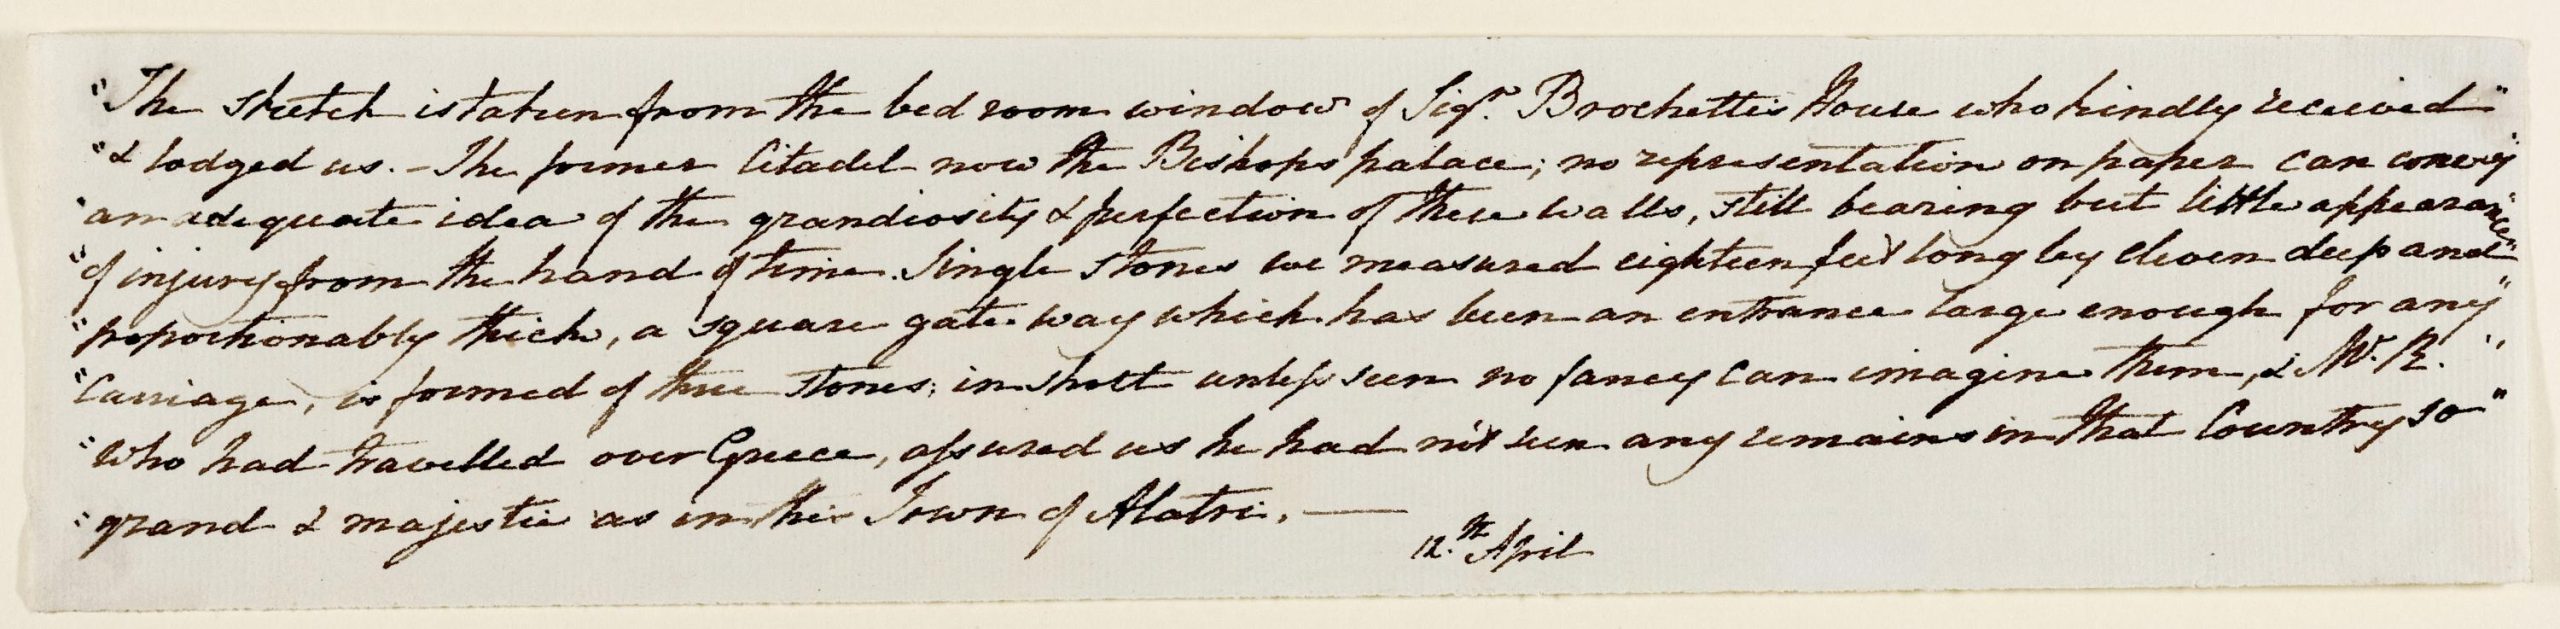 "The sketch is taken from the bed room window of Sigr. Brochetti's House who kindly received"
"& lodged us. – The former Citadel now the Bishops palace; no representation on paper can convey"
"an adequate idea of the grandiosity & perfection of these walls, still bearing but little appearance"
"of injury from the hand of time. Single stones we measured eighteen feet long by eleven deep and"
"proportionably thick, a square gate way which has been an entrance large enough for any"
"Carriage, is formed of three stones; in short unless seen no fancy can imagine them, & Mr. R."
"who had travelled over Greece, assured us he had not seen any remains in that Country so"
"grand & majestic as in this Town of Alatri. —
12.th April